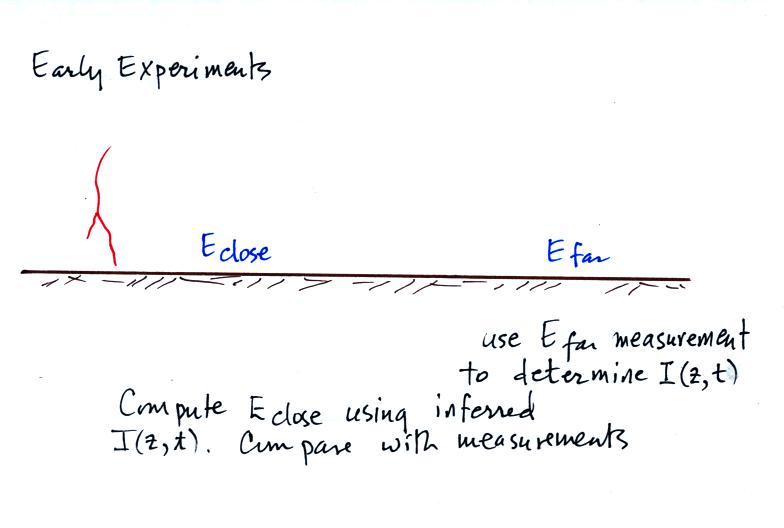 Early Experiments
E close
E far
use E far measurement
to determine I(z,t)
Compute E close using inferred
I(z,t). Compare with measurements